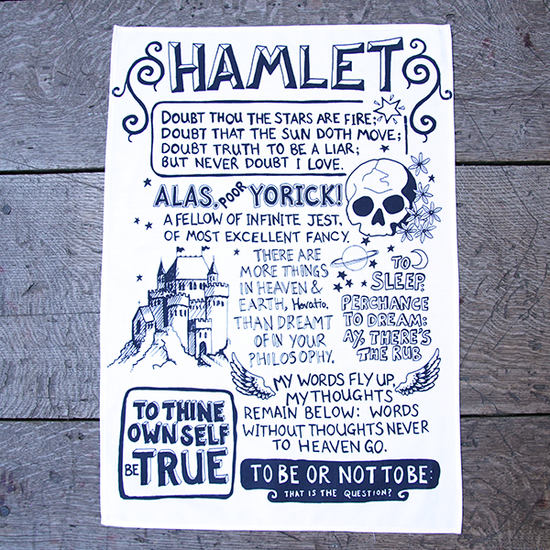 HAMLET
DOUBT THOU THE STARS ARE FIRE;
DOUBT THAT THE SUN DOTH MOVE;
DOUBT TRUTH TO BE A LIAR;
BUT NEVER DOUBT I LOVE.
ALAS, POOR YORICK!
A FELLOW OF INFINITE JEST,
OF MOST EXCELLENT FANCY.
THERE ARE
MORE THINGS
IN HEAVEN &
EARTH, Horatio.
THAN DREAMT
OF IN YOUR
PHILOSOPHY.
TO
SLEEP:
PERCHANCE
TO DREAM:
AY, THERE'S
THE RUB
MY WORDS FLY UP,
MY THOUGHTS
REMAIN BELOW: WORDS
WITHOUT THOUGHTS NEVER
TO HEAVEN GO.
TO THINE
OWN SELF
BE TRUE
TO BE OR NOT TO BE:
THAT IS THE QUESTION?